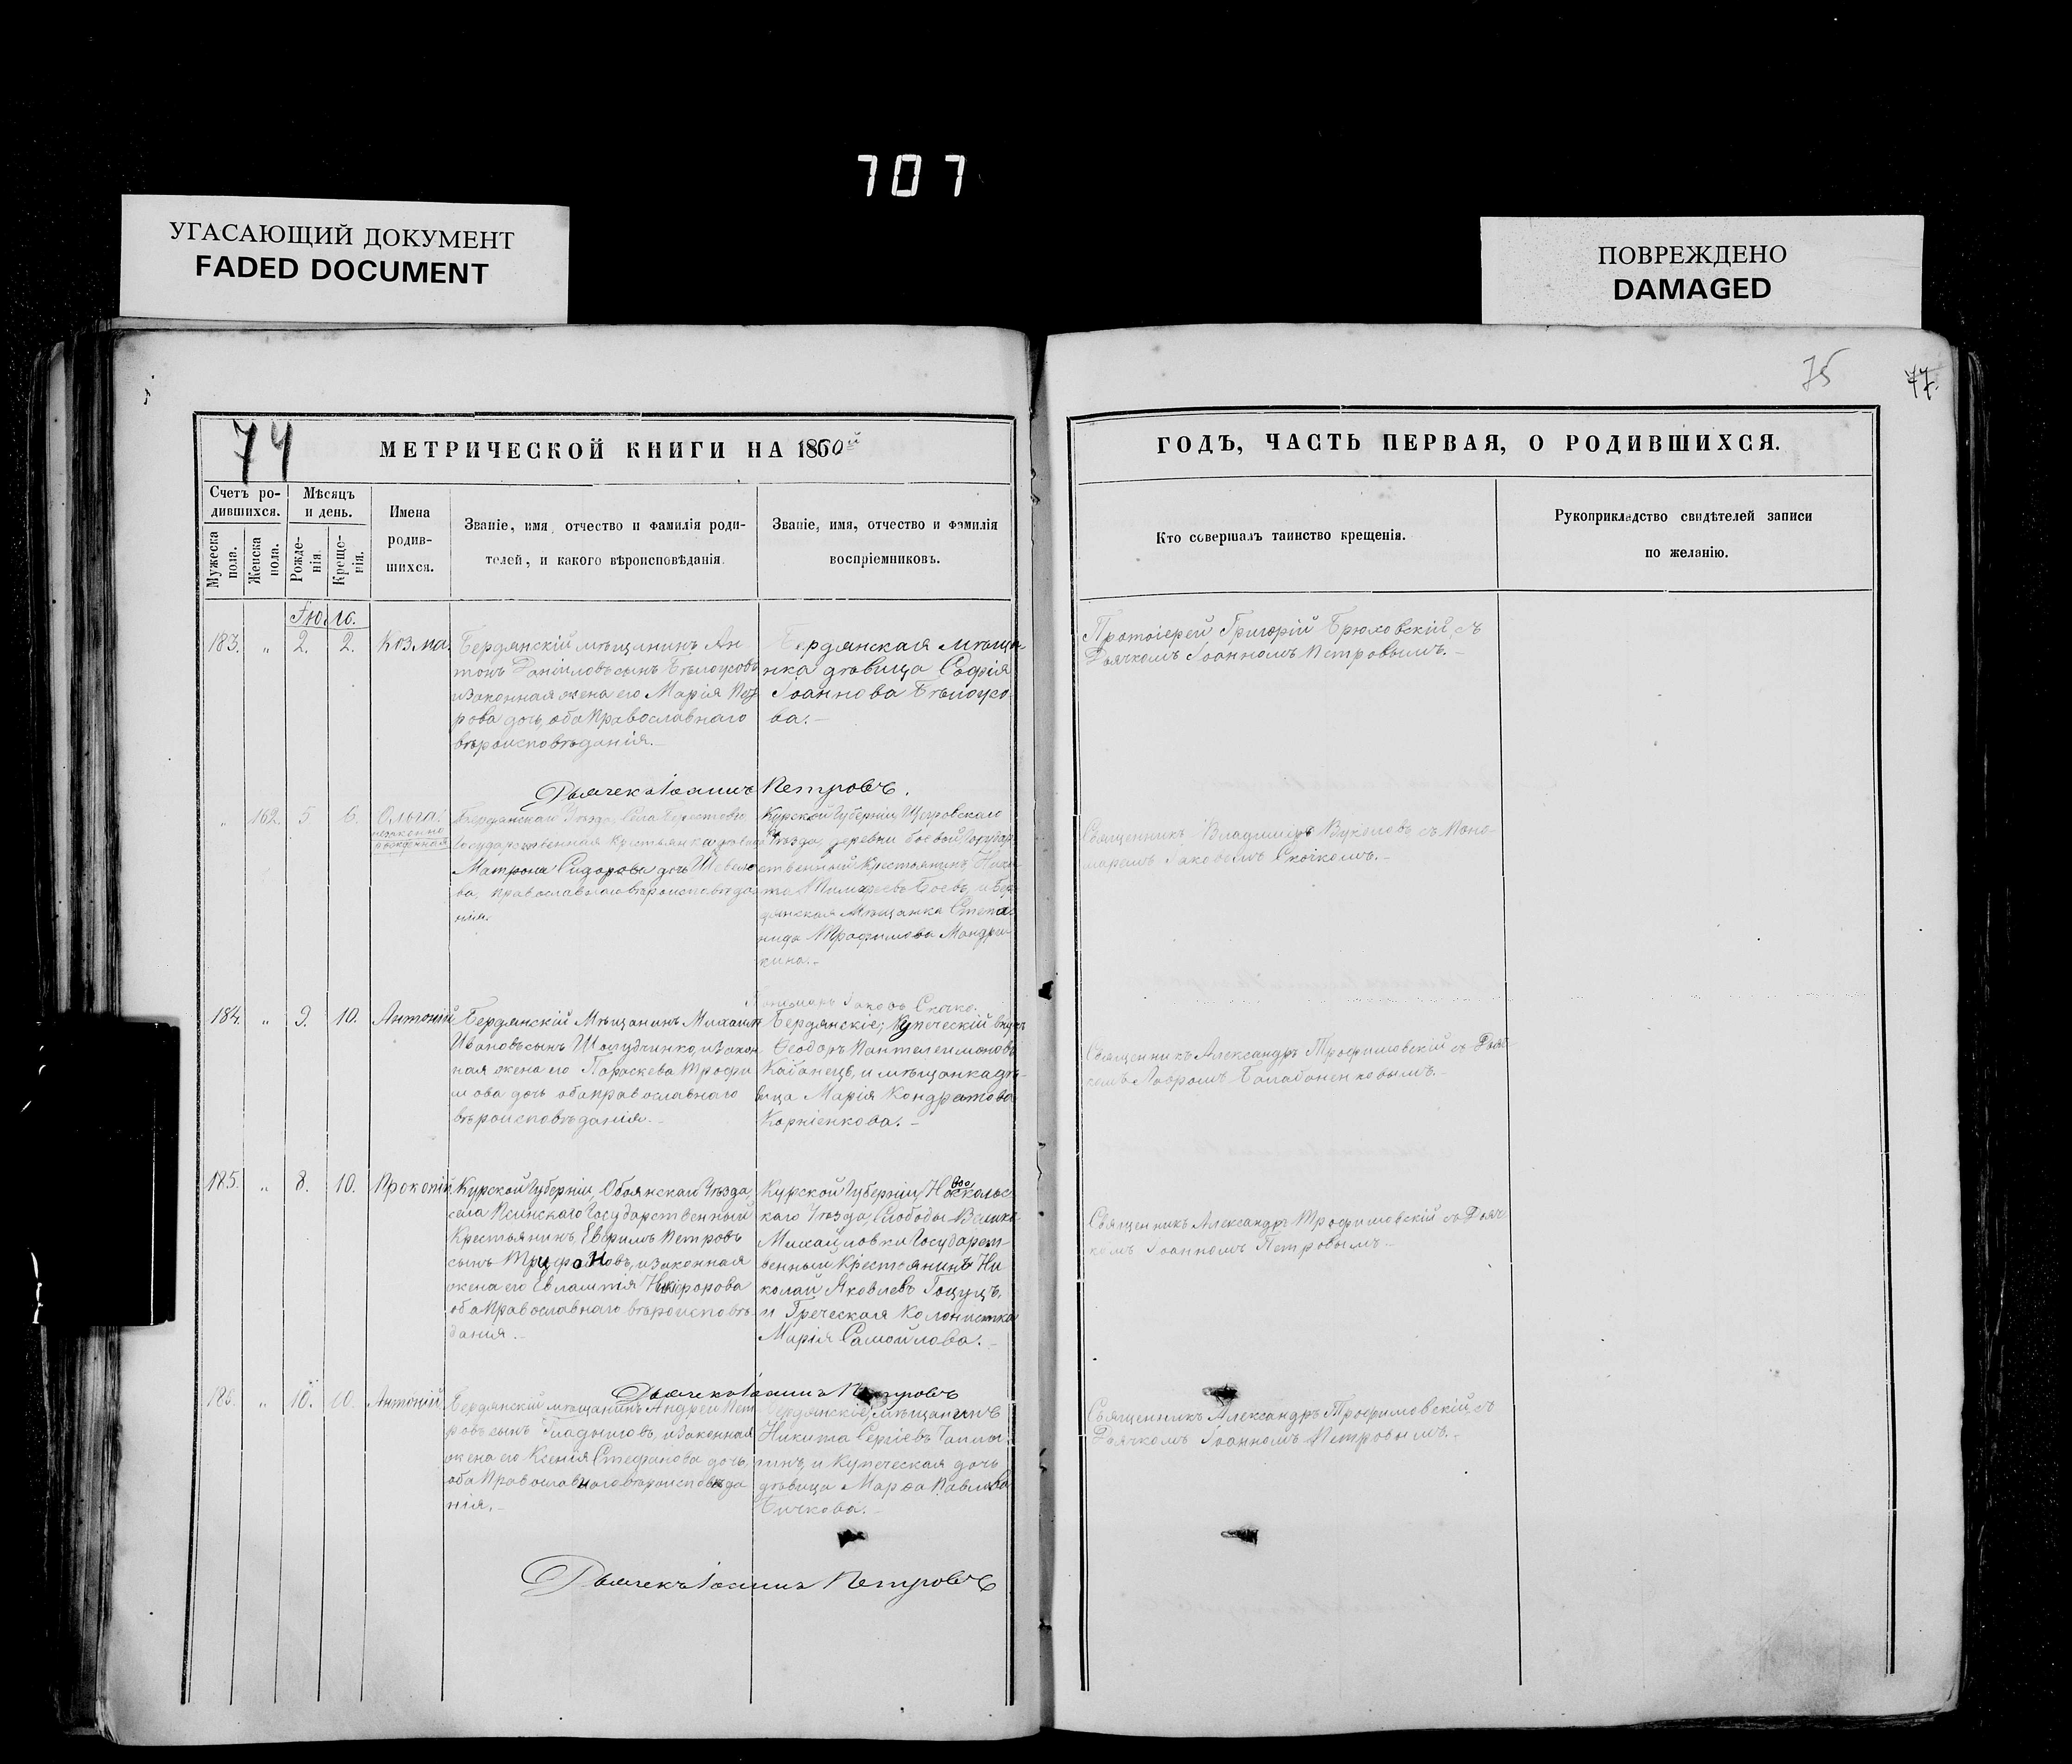 707
УГАСАЮЩИЙ ДОКУМЕНТ
FADED DOCUMENT
ПОВРЕЖДЕНО
DAMAGED
75
77.
74
МЕТРИЧЕСКОЙ КНИГИ НА 1860й
Счетъ ро-
дившихся.
Мужеска
пола.
Женска
пола.
Мѣсяцъ
и день.
Рожде-
нія.
Креще-
нія.
Имена
родив-
шихся.
Званіе, имя, отчество и фамилія роди-
телей, и какого вѣроисповѣданія.
Званіе, имя, отчество и фамилія
воспріемниковъ.
ГОДЪ, ЧАСТЬ ПЕРВАЯ, О РОДИВШИХСЯ.
Кто совершалъ таинство крещенія.
Рукоприкладство свидѣтелей записи
по желанію.
Іюль.
183. " 2. 2. Козма
Бердянскій мѣщанинъ Ан
тонъ Даніиловъ сынъ Бѣлоусовъ
и законная жена его Марія Пет
рова дочь, оба Православнаго
вѣроисповѣданія.-
Бердянская мѣща
нка дѣвица Софія
Іоаннова Бѣлоусо
ва.-
Протоіерей Григорій Брюховскій, съ
Дьячкомъ Іоанномъ Петровымъ.-
Дьячекъ Іоаннъ Петровъ.
" 162. 5 6. Ольга.
незаконно
рожденная
Бердянскаго Уѣзда, Села
Государственная крестьянка дѣвица
Матрона Сидорова дочь Шевело
ва, православнаго вѣроисповѣда
нія.
Курской Губерніи, Щигровскаго
Уѣзда, деревни Боевой, Государ
ственный Крестьянинъ
Боевъ, и Бер
дянская Мѣщанка Степа
нида Трофимова Мандры
кина.-
Священникъ Владиміръ Вуколовъ съ Поно-
маремъ Іаковомъ Скочкомъ.-
Пономарь Іаковъ Скочко.
184. " 9. 10. Антоній
Бердянскій Мѣщанинъ Михаилъ
Ивановъ сынъ Шолудченко, и закон
ная жена его Параскева Трофи
мова дочь оба православнаго
вѣроисповѣданія.-
Бердянскіе; Купеческій внукъ
Ѳеодоръ Пантелеимоновъ
Кабанецъ, и мѣщанка дѣ-
вица Марія Кондратова
Корніенкова.-
Священникъ Александръ Трофимовскій съ Дья
комъ Лавромъ Балабаненковымъ.-
185. " 8. 10. Прокопій
Курской Губерніи, Обоянскаго Уѣзда,
села Псинскаго Государственный
Крестьянинъ Евфимъ Петровъ
сынъ Трифоновъ, и законная
жена его Евлампія Никифорова
оба Православнаго вѣроисповѣ-
данія.-
Курской Губерніи, Новоскольс
каго Уѣзда, Слободы Велико-
Михайловки Государст
венный Крестьянинъ Ни
колай Яковлевъ Гоцуцъ,
и Греческая Колонистка
Марія Самойлова.-
Священникъ Александръ Трофимовскій съ Дьяч
комъ Іоанномъ Петровымъ.-
Дьячекъ Іоаннъ Петровъ
186. " 10. 10. Антоній
Бердянскій мѣщанинъ Андрей Пет
ровъ сынъ Гладышовъ, и законная
жена его Ксенія Стефанова дочь,
оба Православнаго вѣроисповѣда
нія.-
Бердянскіе; мѣщанинъ
Никита Сергіевъ
и Купеческая дочь
дѣвица Марѳа Павлова
Бичкова.-
Священникъ Александръ Трофимовскій, съ
Дьячкомъ Іоанномъ Петровымъ.-
Дьячекъ Іоаннъ Петровъ